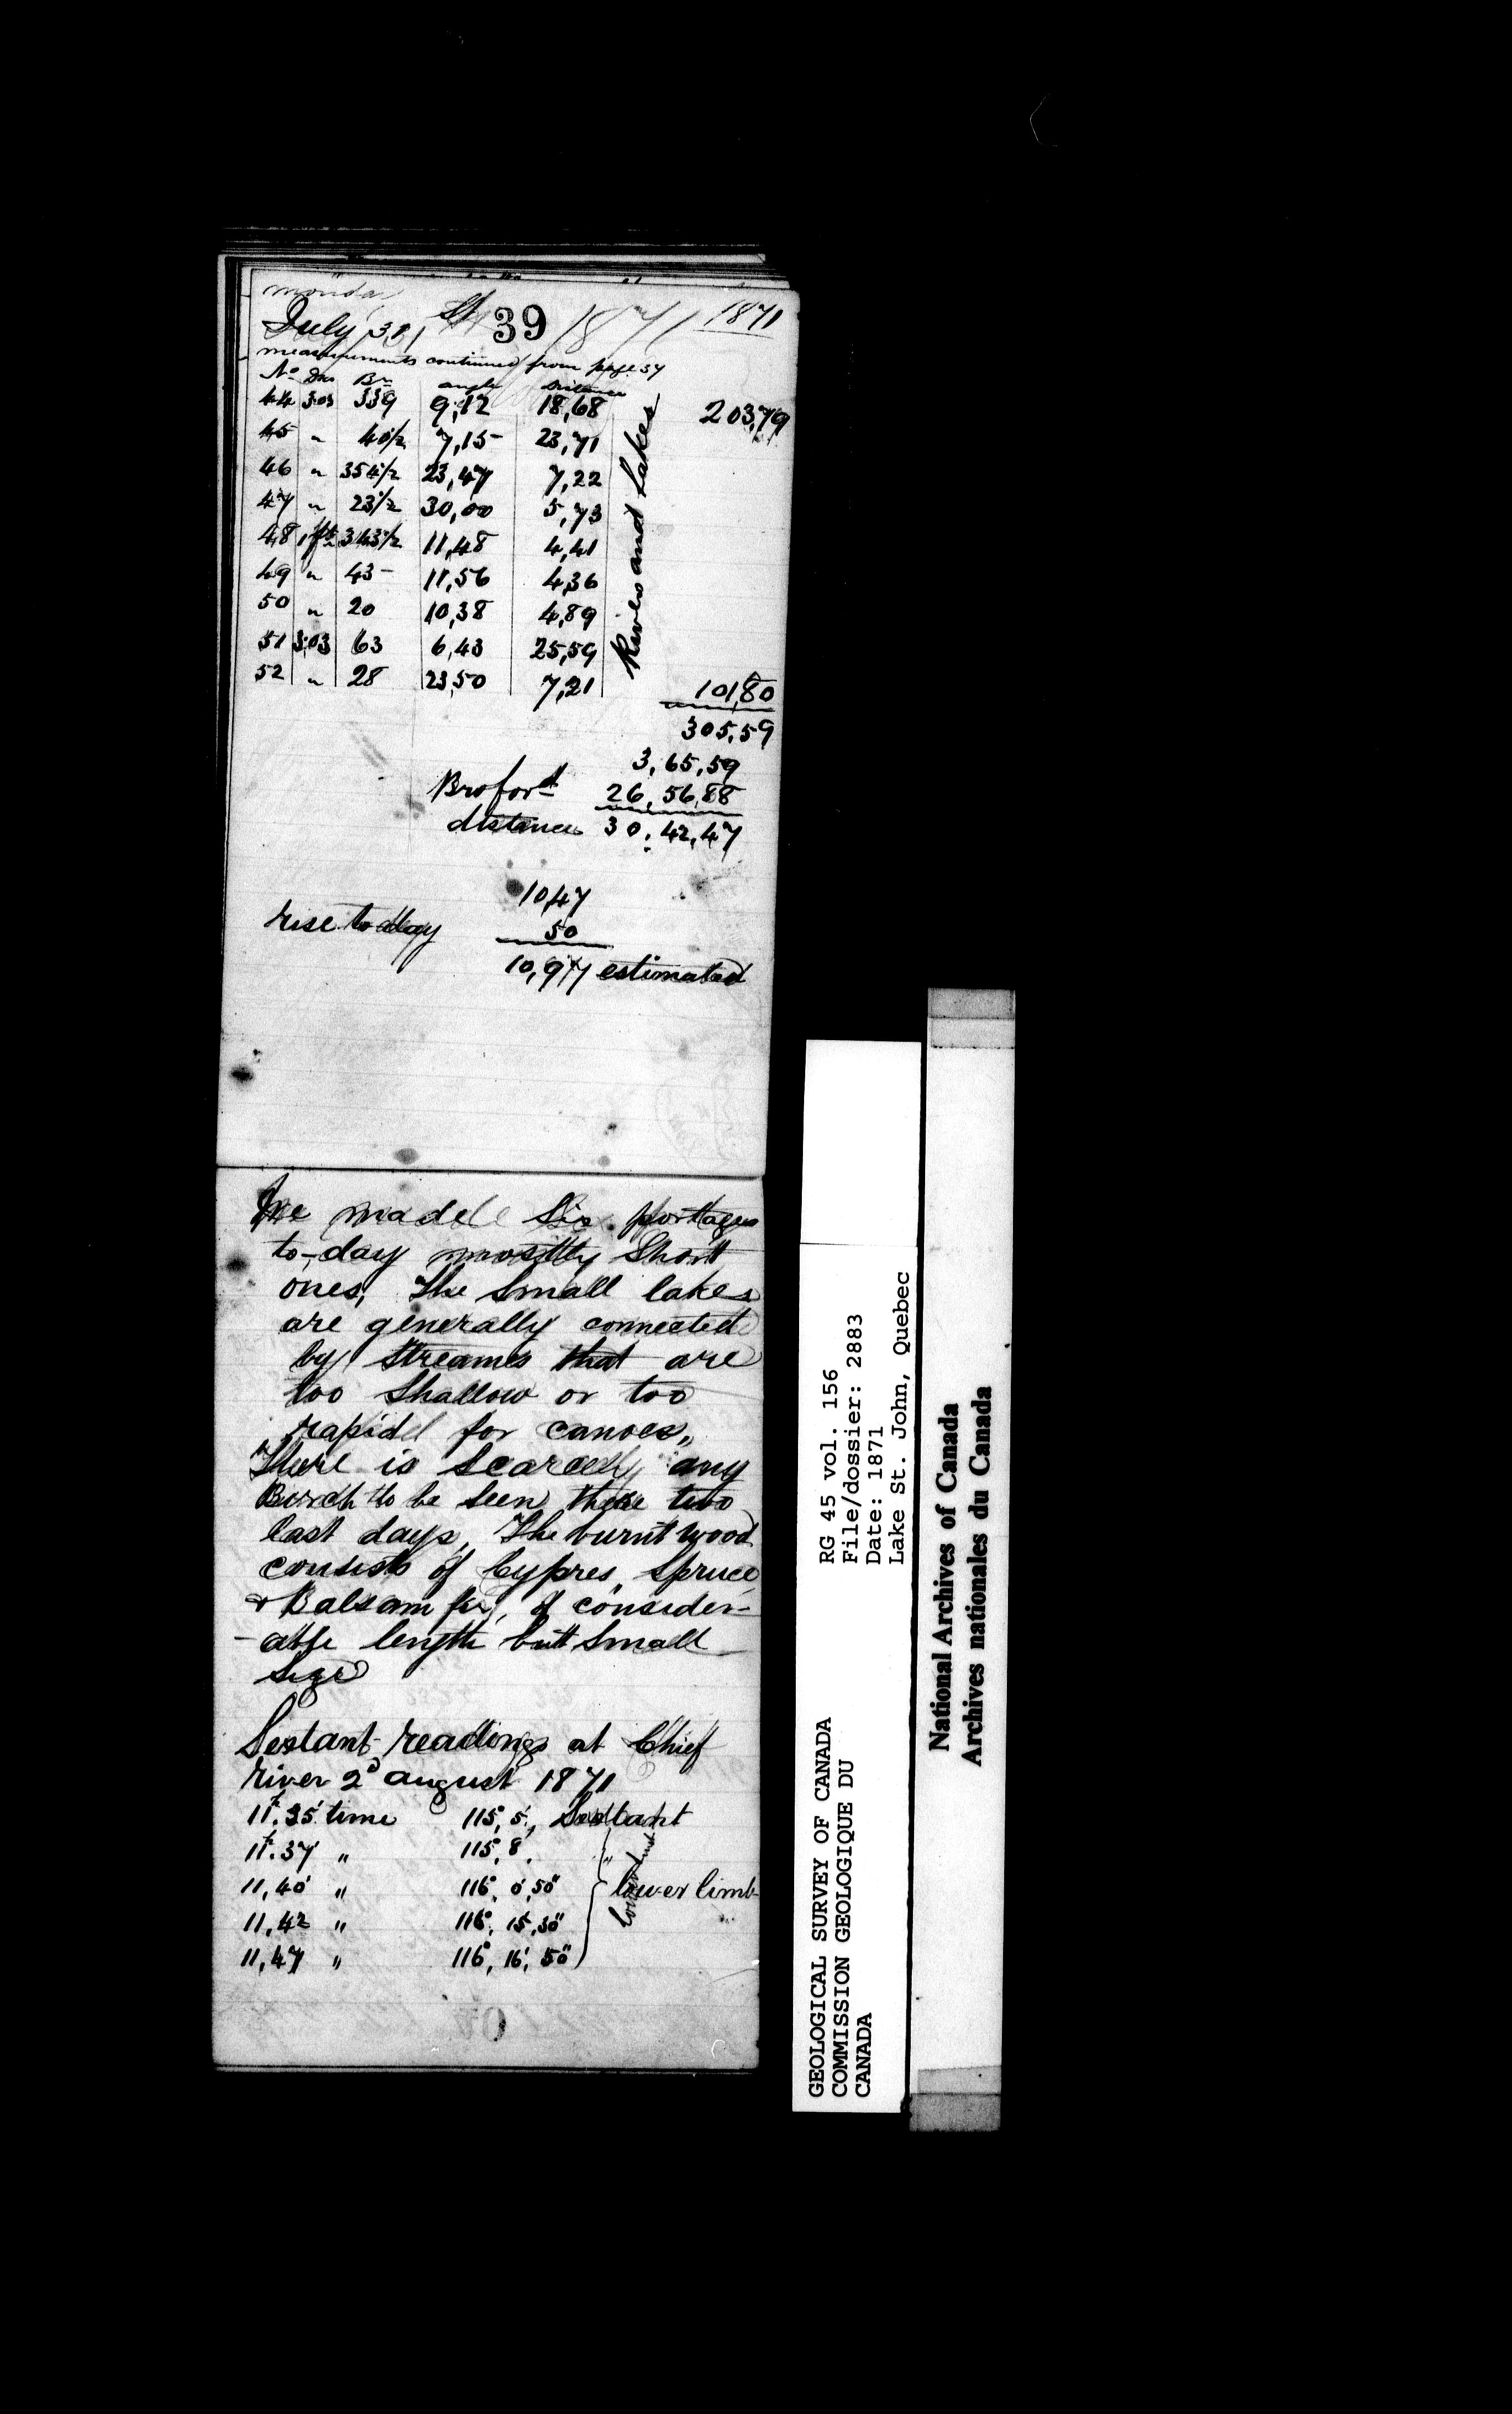 monday
July 31, st 39 1871 1871
measurements continued from page 37
No Dis Br angle distance
44 3.03 339 9,12 18,68 203,79
45 " 40½ 7,15 23,71
46 " 354½ 23,47 7,22
47 " 23½ 30,00 5,73
48 1ft 343½ 11,48 4,41
49 " 43 11,56 4,36
50 " 20 10,38 4,89
51 3.03 63 6,43 25,59
52 " 28 23,50 7,21
Rivers and Lakes
101,80
305,59
3,65,59
Broford 26,56,88
distance 30,42,47
10,47
rise to day 50
10,97 estimated
We made six portages
to-day mostly Short
ones, The Small lakes
are generally connected
by Streames that are
too Shallow or too
rapid for canoes,,
There is Scarcely any
Burch to be Seen these two
last days, The burnt wood
consists of Cypres, Spruce
& Balsam fir, of consider-
-able length butt Small
Size
Sextant readings at Chief
River 2d august 1871
11h.35' time 115°, 5', Sextant
11h.37' " 115°, 8',
11,40' " 116°, 0', 50" lower limb
11,42 " 116°, 15', 30"
11,47 " 116°, 16', 50"
GEOLOGICAL SURVEY OF CANADA
COMMISSION GEOLOGIQUE DU
CANADA
RG 45 vol. 156
File/dossier: 2883
Date: 1871
Lake St. John, Quebec
National Archives of Canada
Archives nationales du Canada